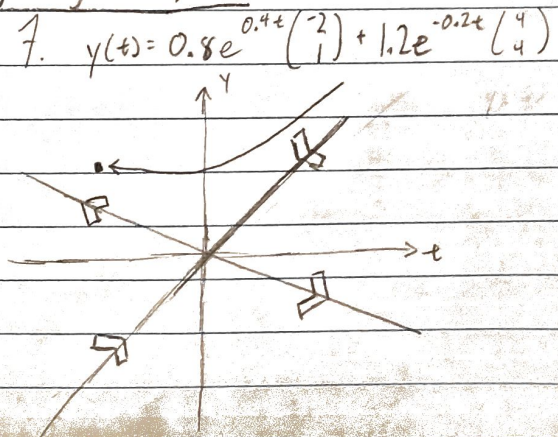 7. y(t) = 0.8e^{0.4t} (-2 1) + 1.2e^{-0.2t} (4 4)
Y
t